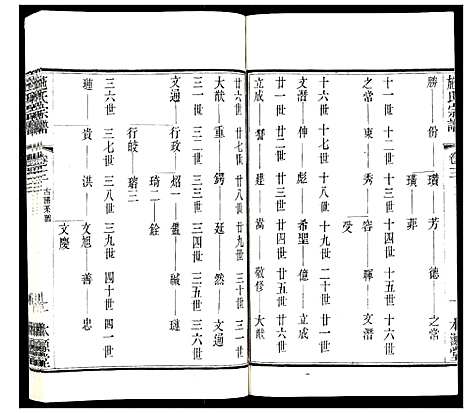 施氏宗譜
卷三
一
本源堂
勝 份 瓚 芳 德 之常
璜 菲
十一世 十二世 十三世 十四世 十五世 十六世
之常 東 秀 容 輝 文潛
受
十六世 十七世 十八世 十九世 二十世 廿一世
文潛 伸 彪 希聖 億 立成
廿一世 廿二世 廿三世 廿四世 廿五世 廿六世
立成 譽 建 嵩 敬修 大猷
廿六世 廿七世 廿八世 廿九世 三十世 三一世
大猷 重 鍔 廷 然 文通
三一世 三二世 三三世 三四世 三五世 三六世
文通 行政 炤一 儘 瑊 璉
琦二 銓
行皎 瑨二
三六世 三七世 三八世 三九世 四十世 四一世
璉 貴 洪 文旭 善 忠
文慶
施氏宗譜
卷三
古譜系圖
本源堂